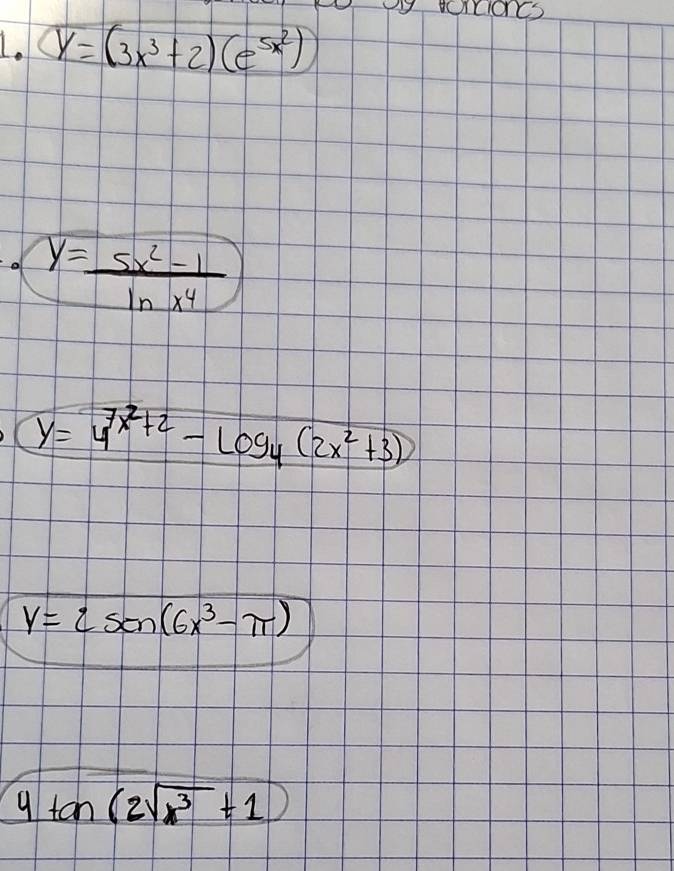 1. y = (3x³+2)(e^5x²)
y = 5x² - 1
ln x⁴
y = 4^7x²+2 - Log₄ (2x²+3)
y = 2 sen(6x³ - π)
4 tan (2√x³ + 1